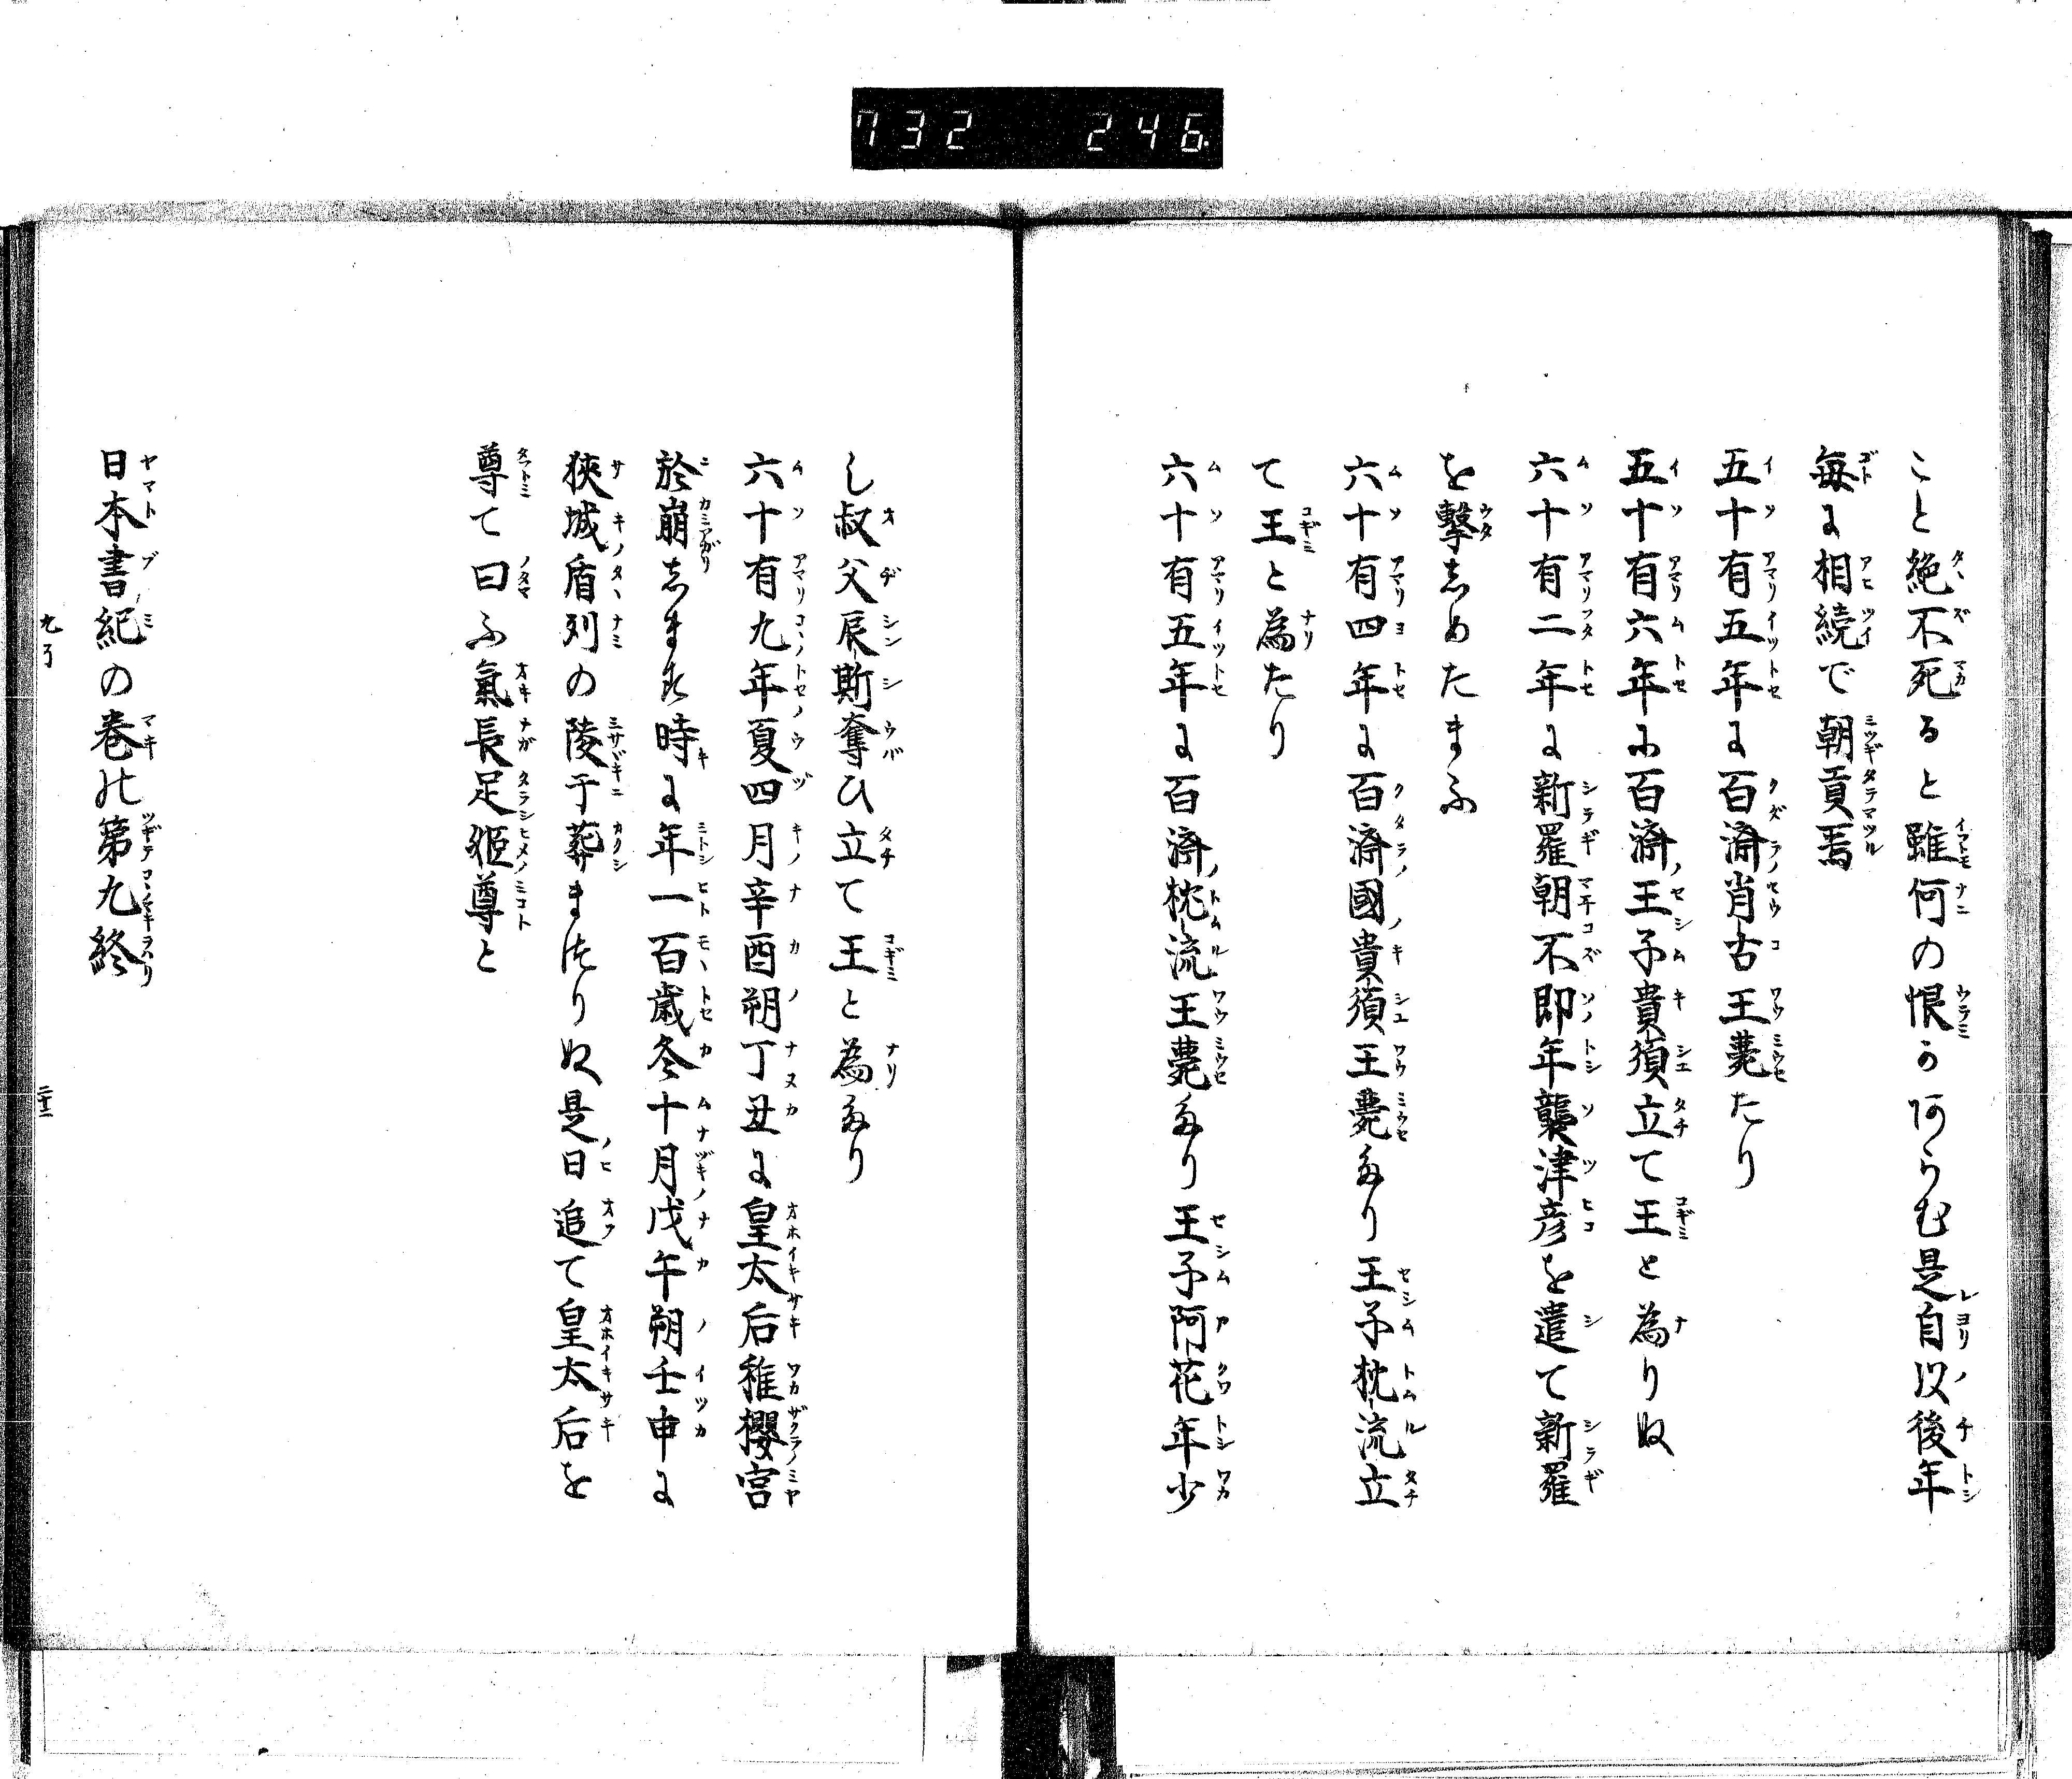 732 246
こと絶不死ると雖何の恨か阿らむ是自以後年
毎に相続で朝貢焉
五十有五年に百濟肖古王薨たり
五十有六年に百濟王子貴須立て王と為りぬ
六十有二年に新羅朝不即年襲津彦を遣て新羅
を擊志めたまふ
六十有四年に百濟國貴須王薨多り王子枕流立
て王と為たり
六十有五年に百濟枕流王薨多り王子阿花年少
し叔父辰斯奪ひ立て王と為多り
六十有九年夏四月辛酉朔丁丑に皇太后稚櫻宮
於崩志ま須時に年一百歳冬十月戊午朔壬申に
狹城盾列の陵于葬ま徒りぬ是日追て皇太后を
尊て曰ふ氣長足姬尊と
日本書紀の巻能第九終